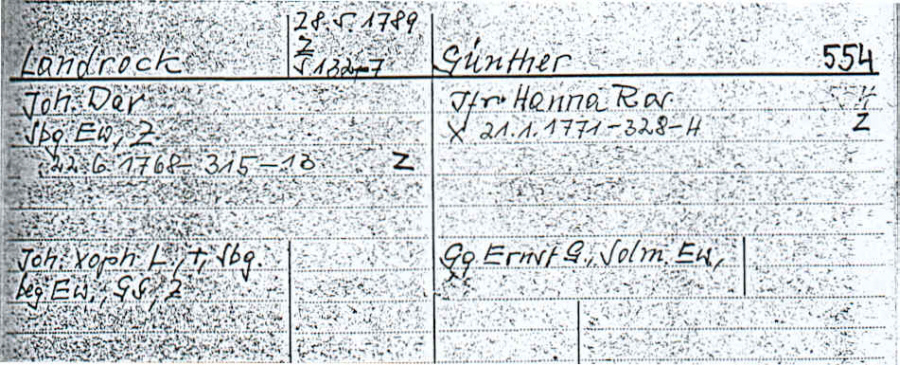 Landrock
28.5.1789
Z
S 132-7
Günther
554
Joh. Dav
Sbg Ew, Z
22.6.1768-315-10 Z
Jfr. Hanna Ros.
X 21.1.1771-328-4
Z
Joh. Xoph L, †, Sbg.
beg Ew., GS, Z
Gg Ernst G., Solm. Ew,